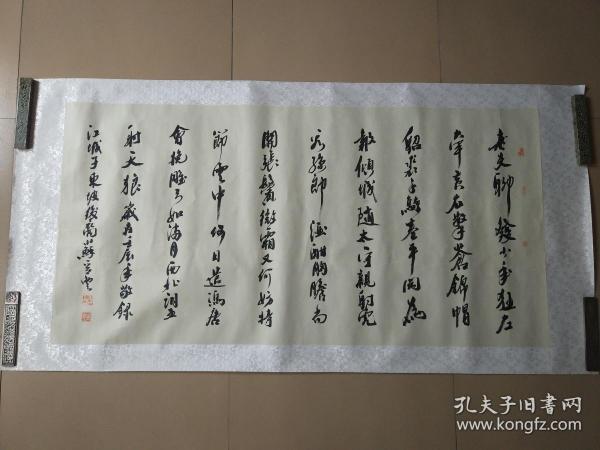 老夫聊發少年狂左
牽黃右擎蒼錦帽
貂裘千騎卷平岡為
報傾城隨太守親射虎
看孫郎 酒酣胸膽尚
開張鬢微霜又何妨持
節雲中何日遣馮唐
會挽雕弓如滿月西北望
射天狼 歲在 敬錄
江城子東坡後裔蘇
孔夫子旧书网
www.kongfz.com